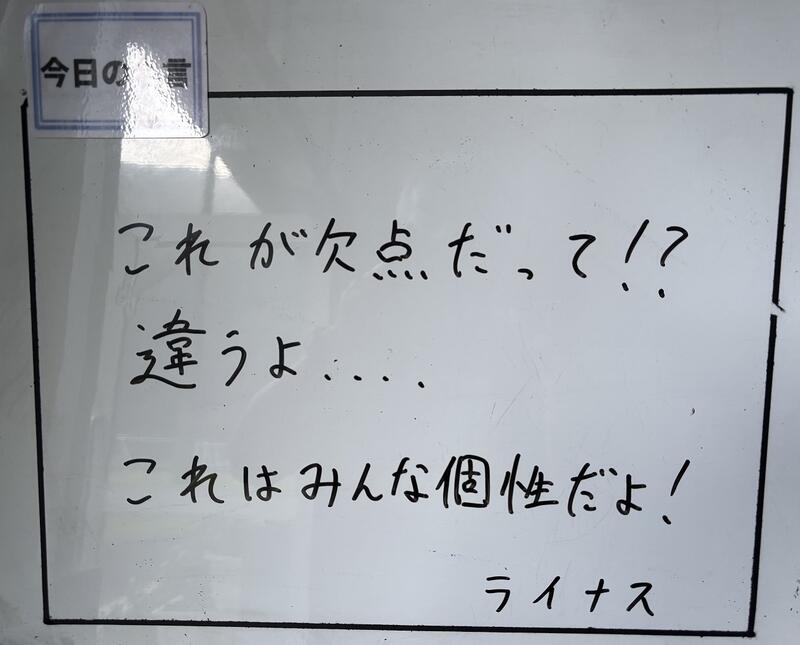 今日の 言
これが欠点だって!?
違うよ....
これはみんな個性だよ!
ライナス